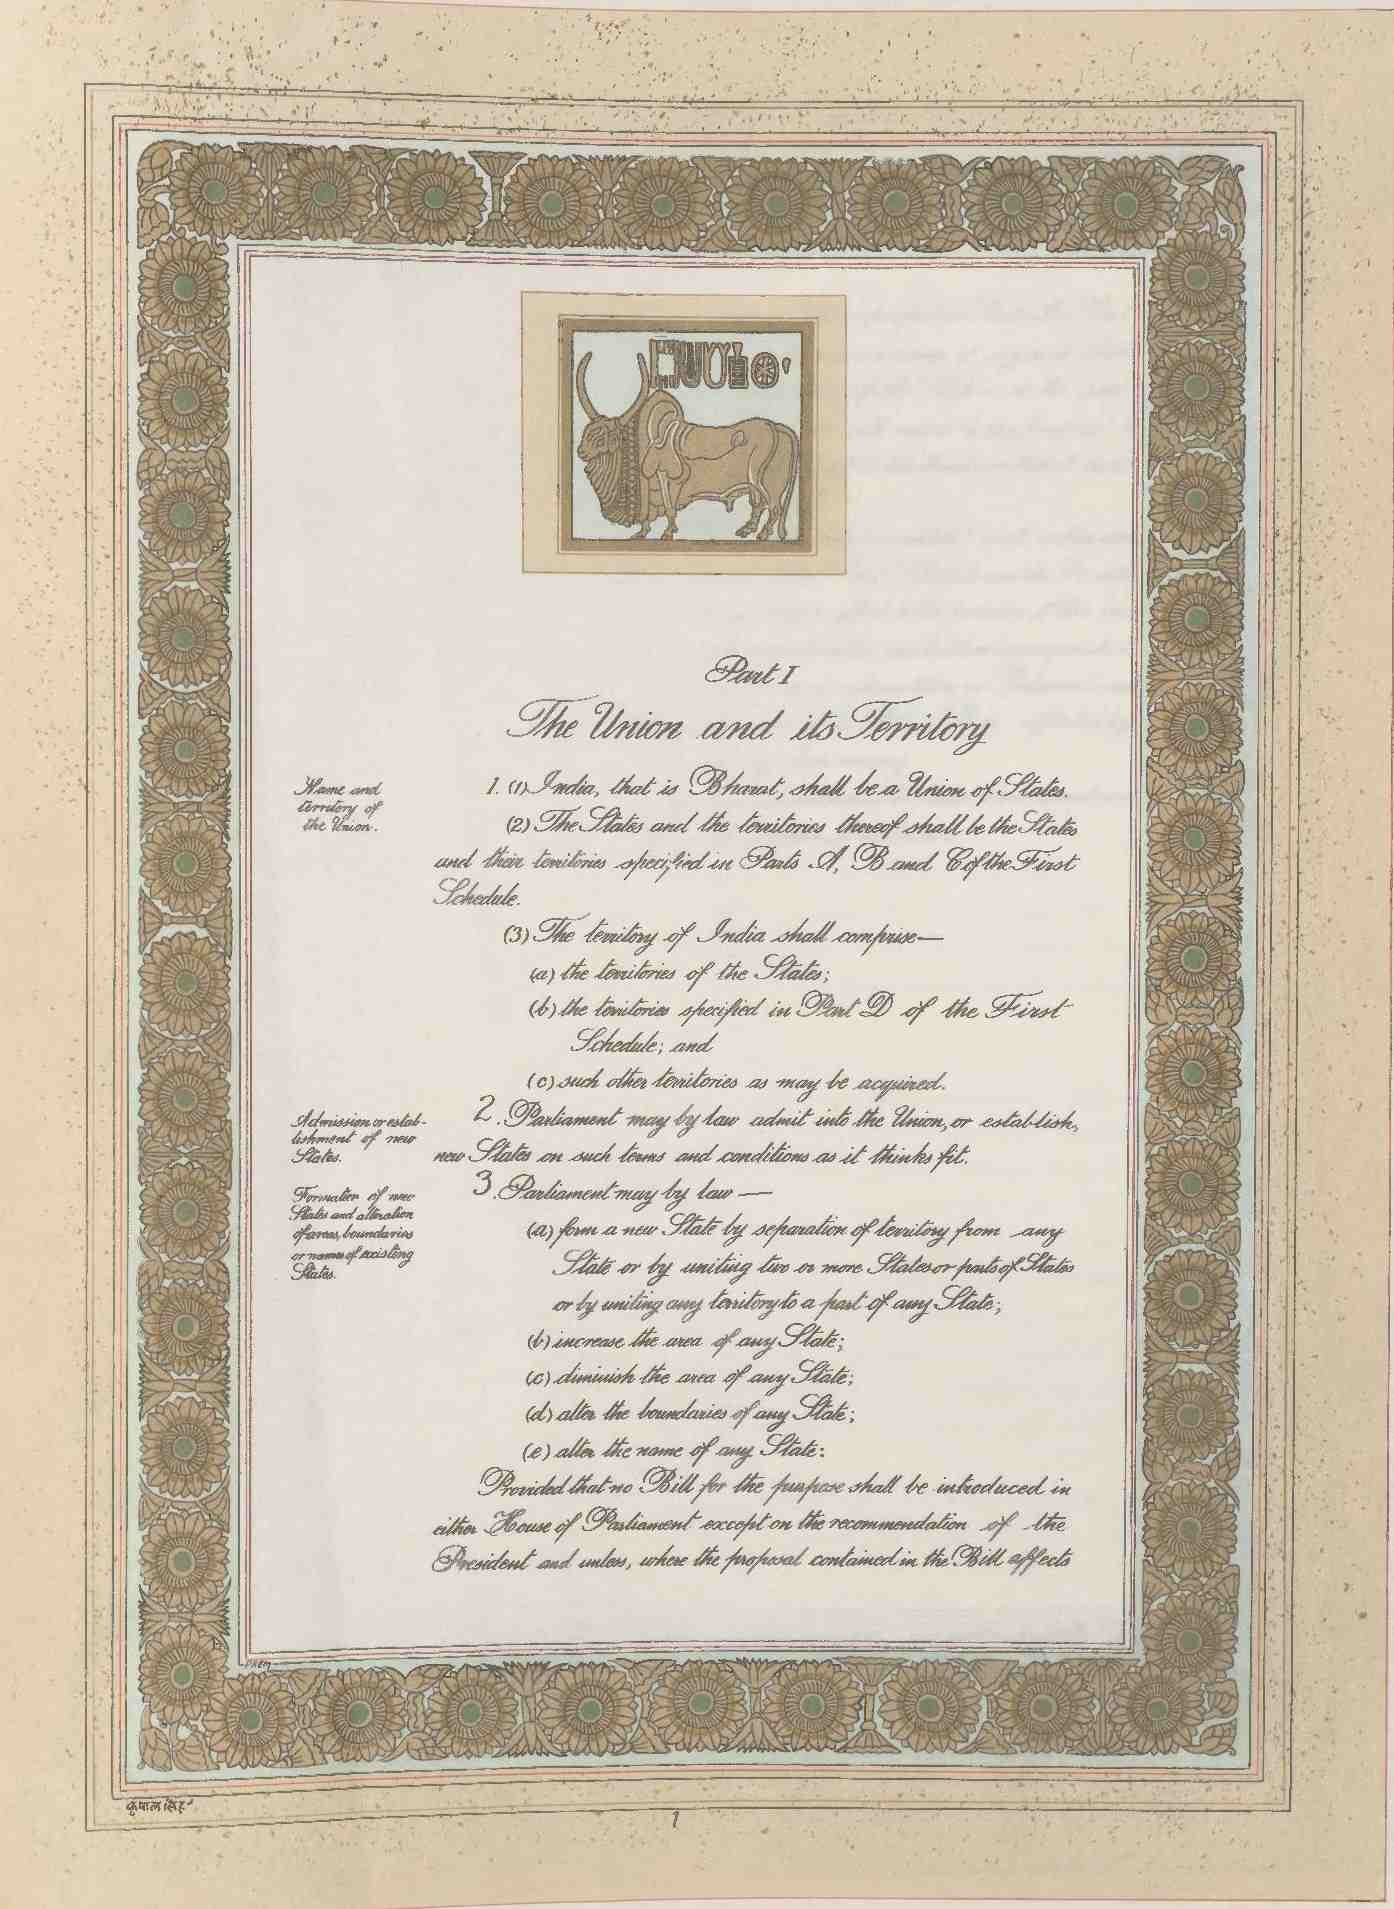 Part I
The Union and its Territory
Name and
territory of
the Union.
1. (1) India, that is Bharat, shall be a Union of States.
(2) The States and the territories thereof shall be the States
and their territories specified in Parts A, B and C of the First
Schedule.
(3) The territory of India shall comprise—
(a) the territories of the States;
(b) the territories specified in Part D of the First
Schedule; and
(c) such other territories as may be acquired.
Admission or estab-
lishment of new
States.
2. Parliament may by law admit into the Union, or establish,
new States on such terms and conditions as it thinks fit.
Formation of new
States and alteration
of areas, boundaries
or names of existing
States.
3. Parliament may by law —
(a) form a new State by separation of territory from any
State or by uniting two or more States or parts of States
or by uniting any territory to a part of any State;
(b) increase the area of any State;
(c) diminish the area of any State;
(d) alter the boundaries of any State;
(e) alter the name of any State:
Provided that no Bill for the purpose shall be introduced in
either House of Parliament except on the recommendation of the
President and unless, where the proposal contained in the Bill affects
PREM
कृपाल सिंह
1